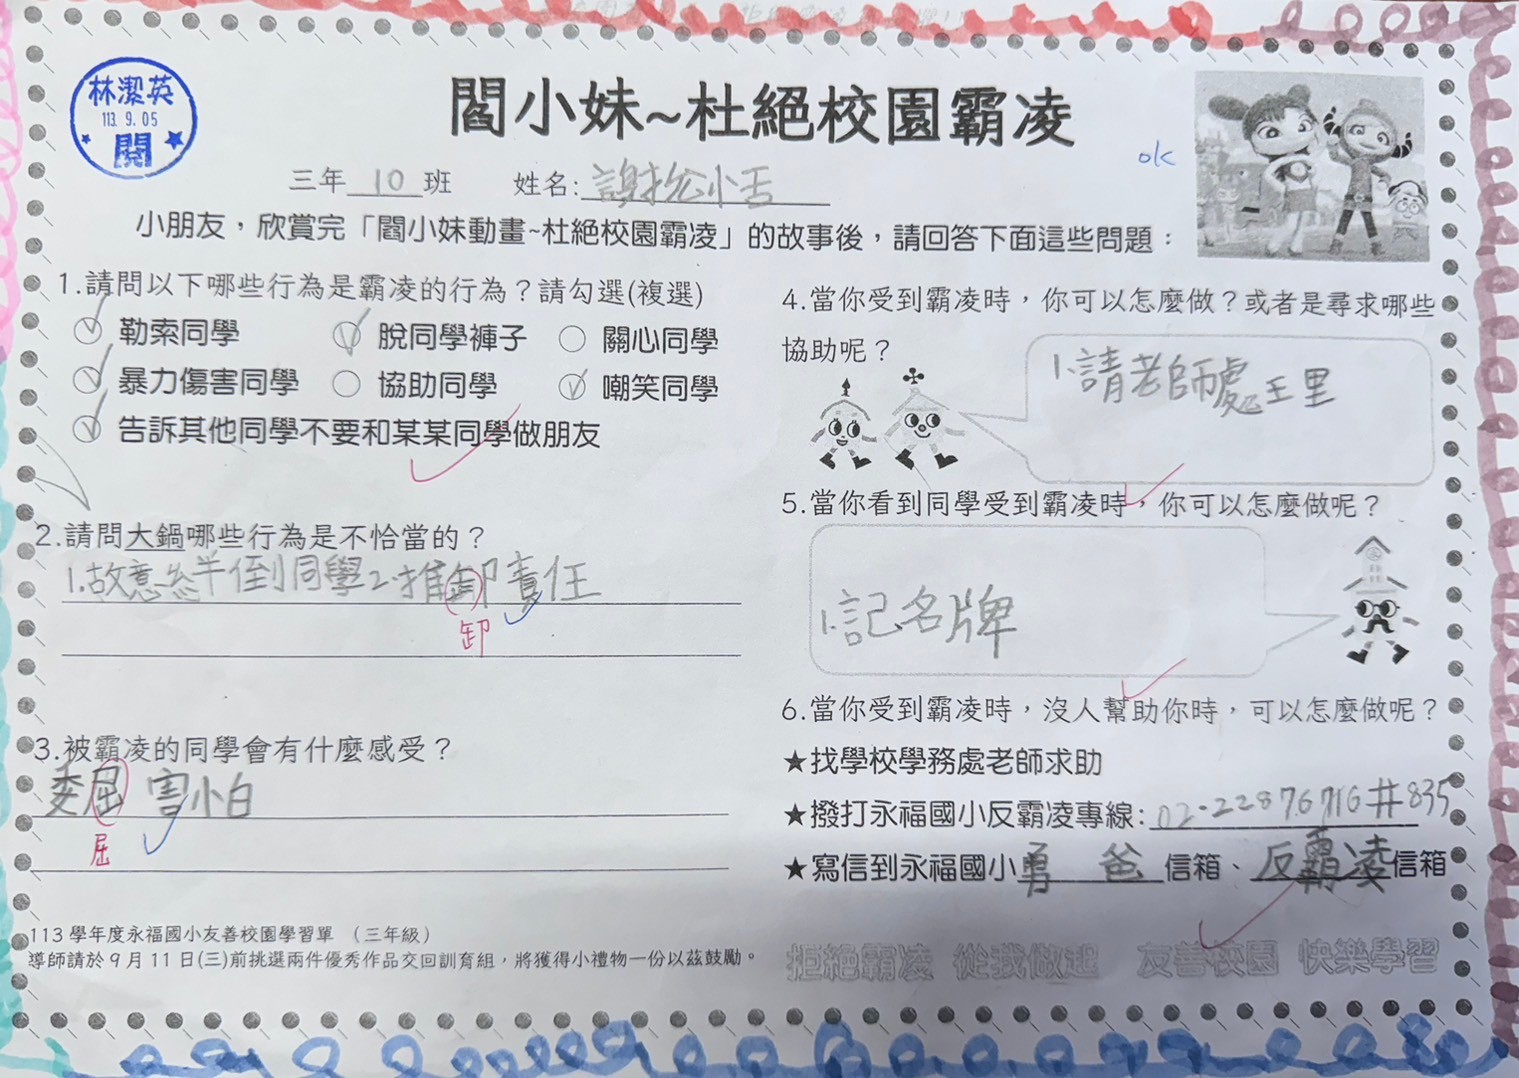 林潔英
113. 9. 05
閱
閻小妹~杜絕校園霸凌
ok
三年 10 班 姓名:謝抡小舌
小朋友，欣賞完「閻小妹動畫~杜絕校園霸凌」的故事後，請回答下面這些問題：
1.請問以下哪些行為是霸凌的行為？請勾選(複選)
勒索同學 脫同學褲子 關心同學
暴力傷害同學 協助同學 嘲笑同學
告訴其他同學不要和某某同學做朋友
2.請問大鍋哪些行為是不恰當的？
1.故意絆倒同學2.推卸責任
卸
3.被霸凌的同學會有什麼感受？
委屈 害小白
屈
113 學年度永福國小友善校園學習單 （三年級）
導師請於 9 月 11 日(三)前挑選兩件優秀作品交回訓育組，將獲得小禮物一份以茲鼓勵。
4.當你受到霸凌時，你可以怎麼做？或者是尋求哪些
協助呢？
1.請老師處王里
5.當你看到同學受到霸凌時，你可以怎麼做呢？
1.記名牌
6.當你受到霸凌時，沒人幫助你時，可以怎麼做呢？
★找學校學務處老師求助
★撥打永福國小反霸凌專線:02-22876716#835
★寫信到永福國小勇 爸信箱、反霸凌信箱
拒絕霸凌 從我做起 友善校園 快樂學習